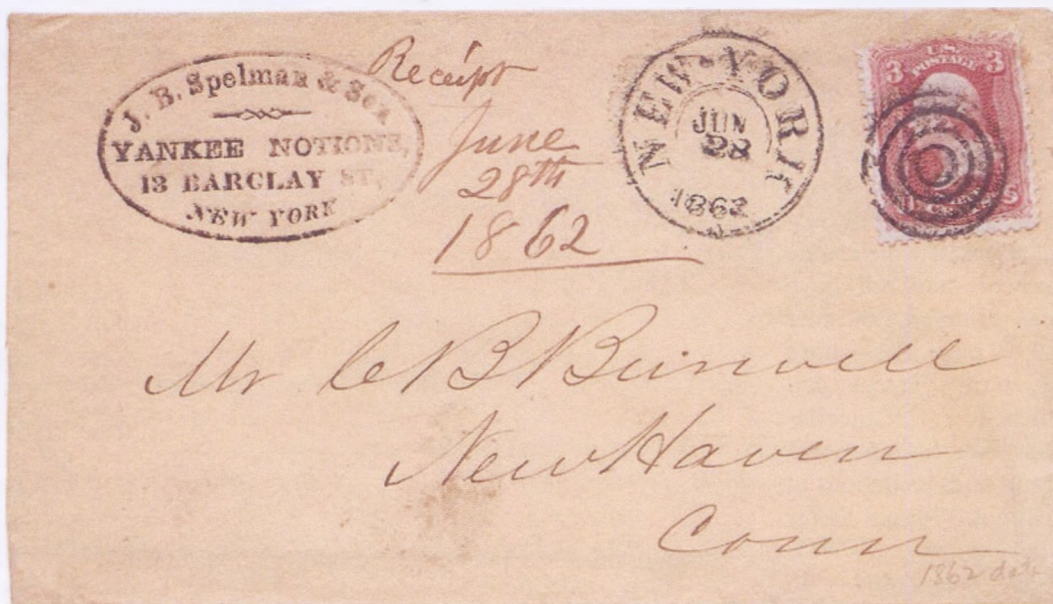 J. B. Spelman & Son
YANKEE NOTIONS,
13 BARCLAY ST,
NEW YORK
Receipt
June
28th
1862
NEW-YORK
JUN
28
1862
U.S.
POSTAGE
3 3
Mr C B Bunwell
New Haven
Conn
1862 date